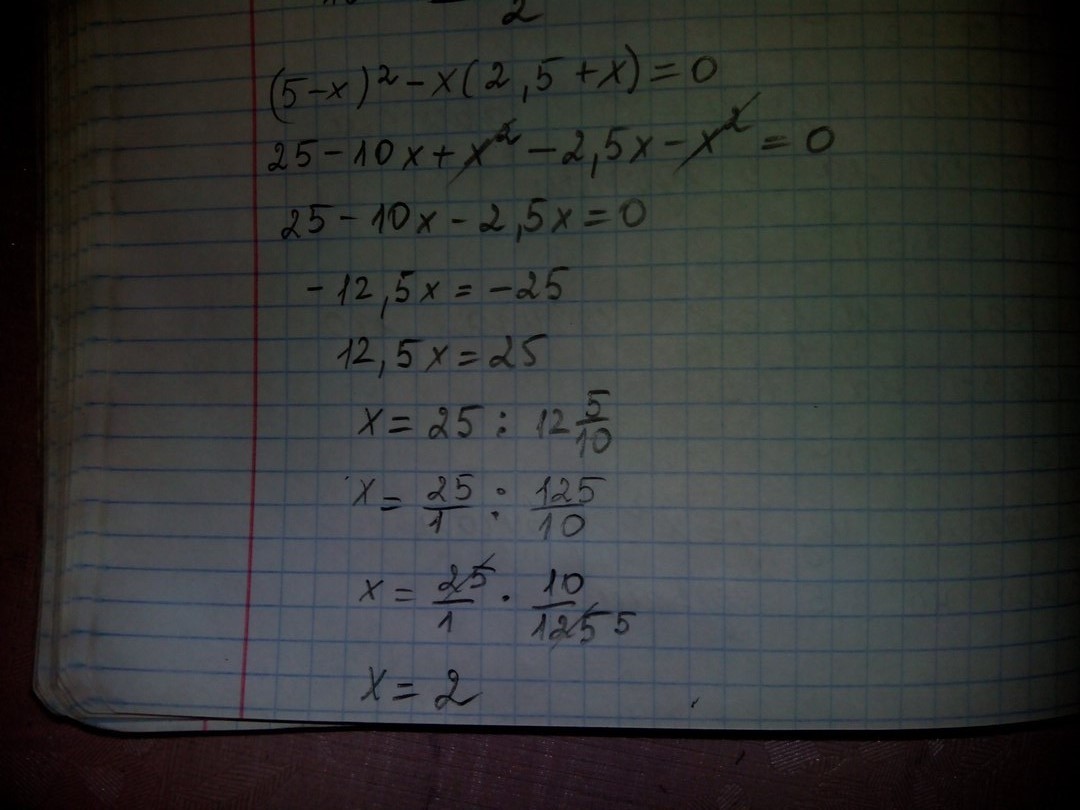 2
(5-x)² - x(2,5+x) = 0
25 - 10x + x² - 2,5x - x² = 0
25 - 10x - 2,5x = 0
-12,5x = -25
12,5x = 25
x = 25 : 12 5/10
x = 25/1 : 125/10
x = 25/1 · 10/125 5
x = 2